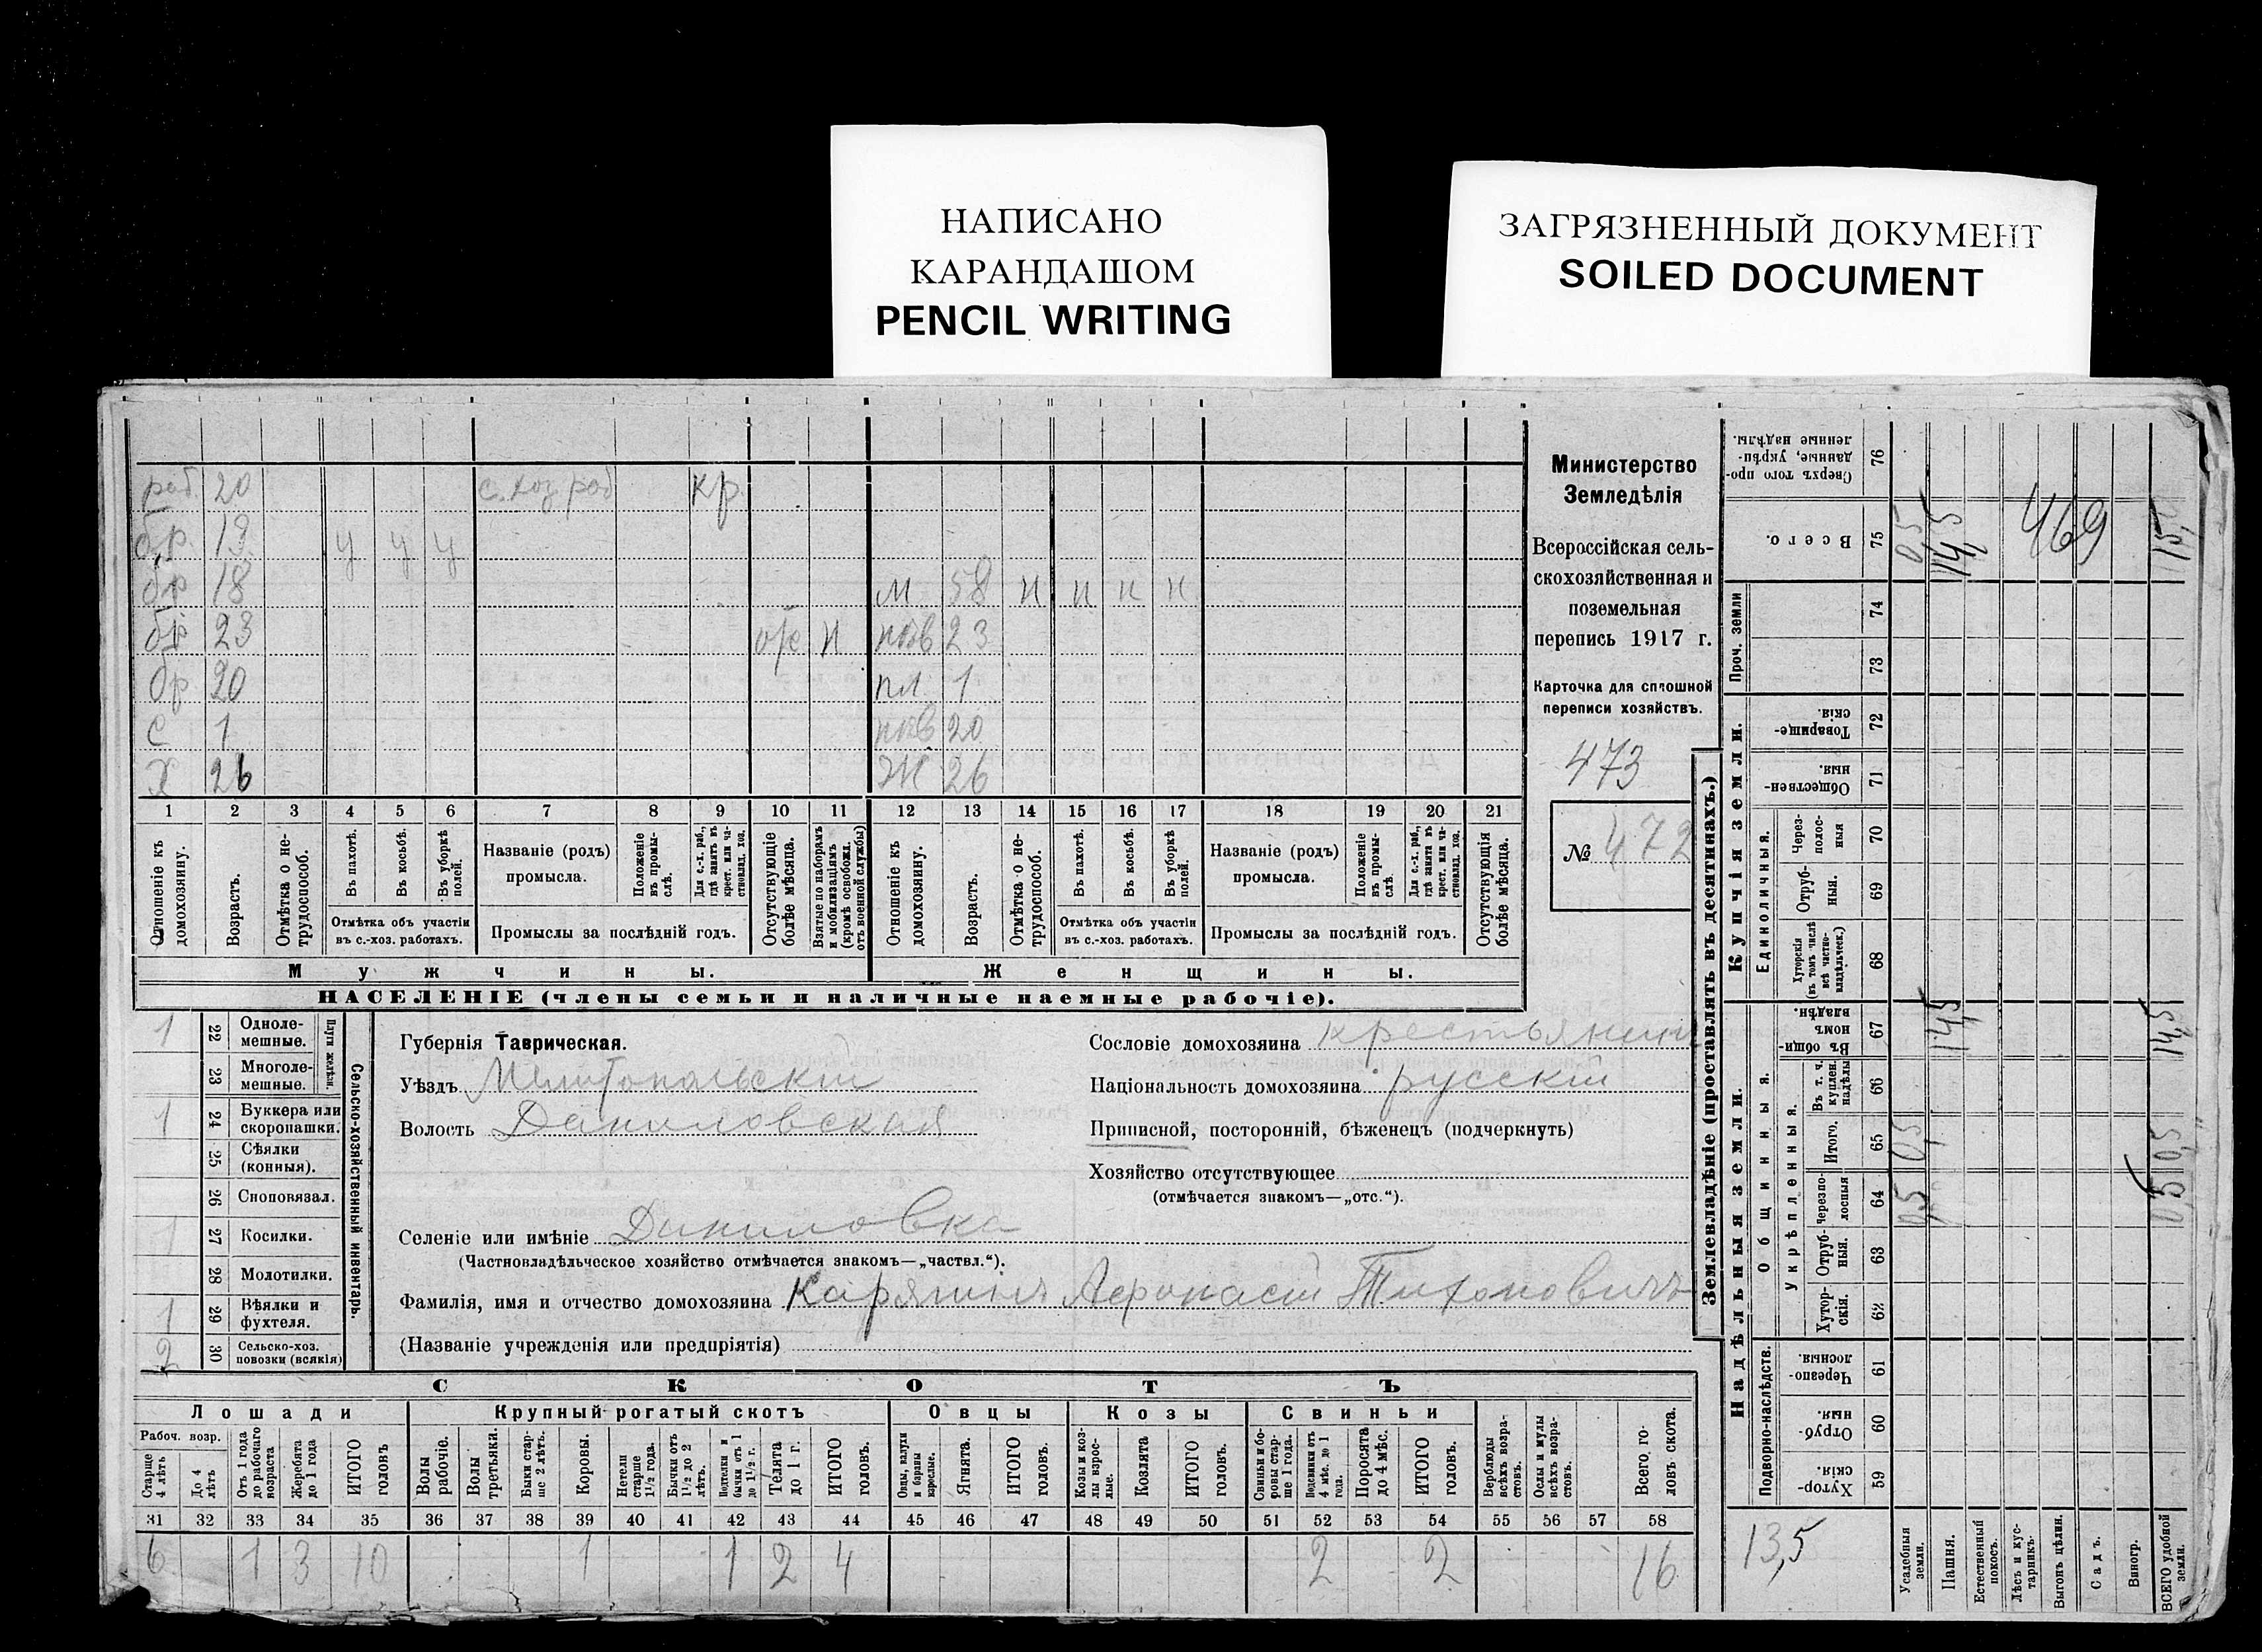 НАПИСАНО
КАРАНДАШОМ
PENCIL WRITING
ЗАГРЯЗНЕННЫЙ ДОКУМЕНТ
SOILED DOCUMENT
раб. 20 с. хоз раб кр.
бр. 19 у у у
бр 18 м 58 н н н н
бр 23 23
бр 20 пл. 1
с 1 20
Х 26 Ж 26
1 2 3 4 5 6 7 8 9 10 11 12 13 14 15 16 17 18 19 20 21
Отношеніе къ домохозяину.
Возрастъ.
Отмѣтка о нетрудоспособ.
Въ пахотѣ.
Въ косьбѣ.
Въ уборкѣ полей.
Отмѣтка объ участіи
въ с.-хоз. работахъ.
Названіе (родъ)
промысла.
Положеніе въ промыслѣ.
Для с.-х. раб., гдѣ занятъ въ крест. или частновлад. хоз.
Промыслы за послѣдній годъ.
Отсутствующіе болѣе мѣсяца.
Взятые по наборамъ и мобилизаціямъ (кромѣ освобожд. отъ военной службы)
Отношеніе къ домохозяину.
Возрастъ.
Отмѣтка о нетрудоспособ.
Въ пахотѣ.
Въ косьбѣ.
Въ уборкѣ полей.
Отмѣтка объ участіи
въ с.-хоз. работахъ.
Названіе (родъ)
промысла.
Положеніе въ промыслѣ.
Для с.-х. раб., гдѣ занята въ крест. или частновлад. хоз.
Промыслы за послѣдній годъ.
Отсутствующія болѣе мѣсяца.
Мужчины.
Женщины.
НАСЕЛЕНІЕ (члены семьи и наличные наемные рабочіе).
Министерство
Земледѣлія
Всероссійская сель-
скохозяйственная и
поземельная
перепись 1917 г.
Карточка для сплошной
переписи хозяйствъ.
473
№ 472
1 22 Одноле-
мешные.
23 Многоле-
мешные.
Плуги желѣзн.
1 24 Буккера или
скоропашки.
25 Сѣялки
(конныя).
26 Сноповязал.
1 27 Косилки.
28 Молотилки.
1 29 Вѣялки и
фухтеля.
2 30 Сельско-хоз.
повозки (всякія)
Сельско-хозяйственный инвентарь.
Губернія Таврическая.
Уѣздъ Мелитопольскій
Волость Даниловская
Селеніе или имѣніе Даниловка
(Частновладѣльческое хозяйство отмѣчается знакомъ—„частвл.“).
Фамилія, имя и отчество домохозяина Карягинъ Афонасій Тихоновичъ
(Названіе учрежденія или предпріятія)
Сословіе домохозяина крестьянинъ
Національность домохозяина русскій
Приписной, посторонній, бѣженецъ (подчеркнуть)
Хозяйство отсутствующее
(отмѣчается знакомъ—„отс.“).
СКОТЪ
Лошади Крупный рогатый скотъ Овцы Козы Свиньи
Рабоч. возр.
Старше 4 лѣтъ
До 4 лѣтъ
Отъ 1 года до рабочаго возраста
Жеребята до 1 года
ИТОГО головъ
Волы рабочіе.
Волы третьяки.
Быки старше 2 лѣтъ.
Коровы.
Нетели старше 1½ года.
Бычки отъ 1½ до 2 лѣтъ.
Подтелки и бычки отъ 1 до 1½ г.
Телята до 1 г.
ИТОГО головъ.
Овцы, валухи и бараны взрослые.
Ягнята.
ИТОГО головъ.
Козы и козлы взрослые.
Козлята
ИТОГО головъ.
Свиньи и боровы старше 1 года.
Подсвинки отъ 4 мѣс. до 1 года.
Поросята до 4 мѣс.
ИТОГО головъ.
Верблюды всѣхъ возрастовъ.
Ослы и мулы всѣхъ возрастовъ.
Всего головъ скота.
31 32 33 34 35 36 37 38 39 40 41 42 43 44 45 46 47 48 49 50 51 52 53 54 55 56 57 58
6 1 3 10 1 1 2 4 2 2 16
Землевладѣніе (проставлять въ десятинахъ.)
Надѣльныя земли.
Купчія земли.
Проч. земли
Подворно-наслѣдств.
Общинныя.
Укрѣпленныя.
Единоличныя.
Сверхъ того проданные, укрѣпленные надѣлы. 76
Всего. 75 0,5 14,5 469 15,
74
73
Товарищескія. 72
Общественныя. 71
Черезполосныя 70
Отрубныя. 69
Хуторскія (въ томъ числѣ всѣ частновладѣльческ.) 68
Въ общинномъ владѣн. 67 14,5 14,5
Въ т. ч. куплен. надѣлы 66
Итого. 65 0,5 0,5
Черезполосныя 64 0,5 0,5
Отрубныя. 63
Хуторскія. 62
Черезполосныя. 61
Отрубныя. 60
Хуторскія. 59
13,5
Усадебныя земли.
Пашня.
Естественный покосъ.
Лѣсъ и кустарникъ.
Выгонъ цѣлин.
Садъ.
Виногр.
ВСЕГО удобной земли.